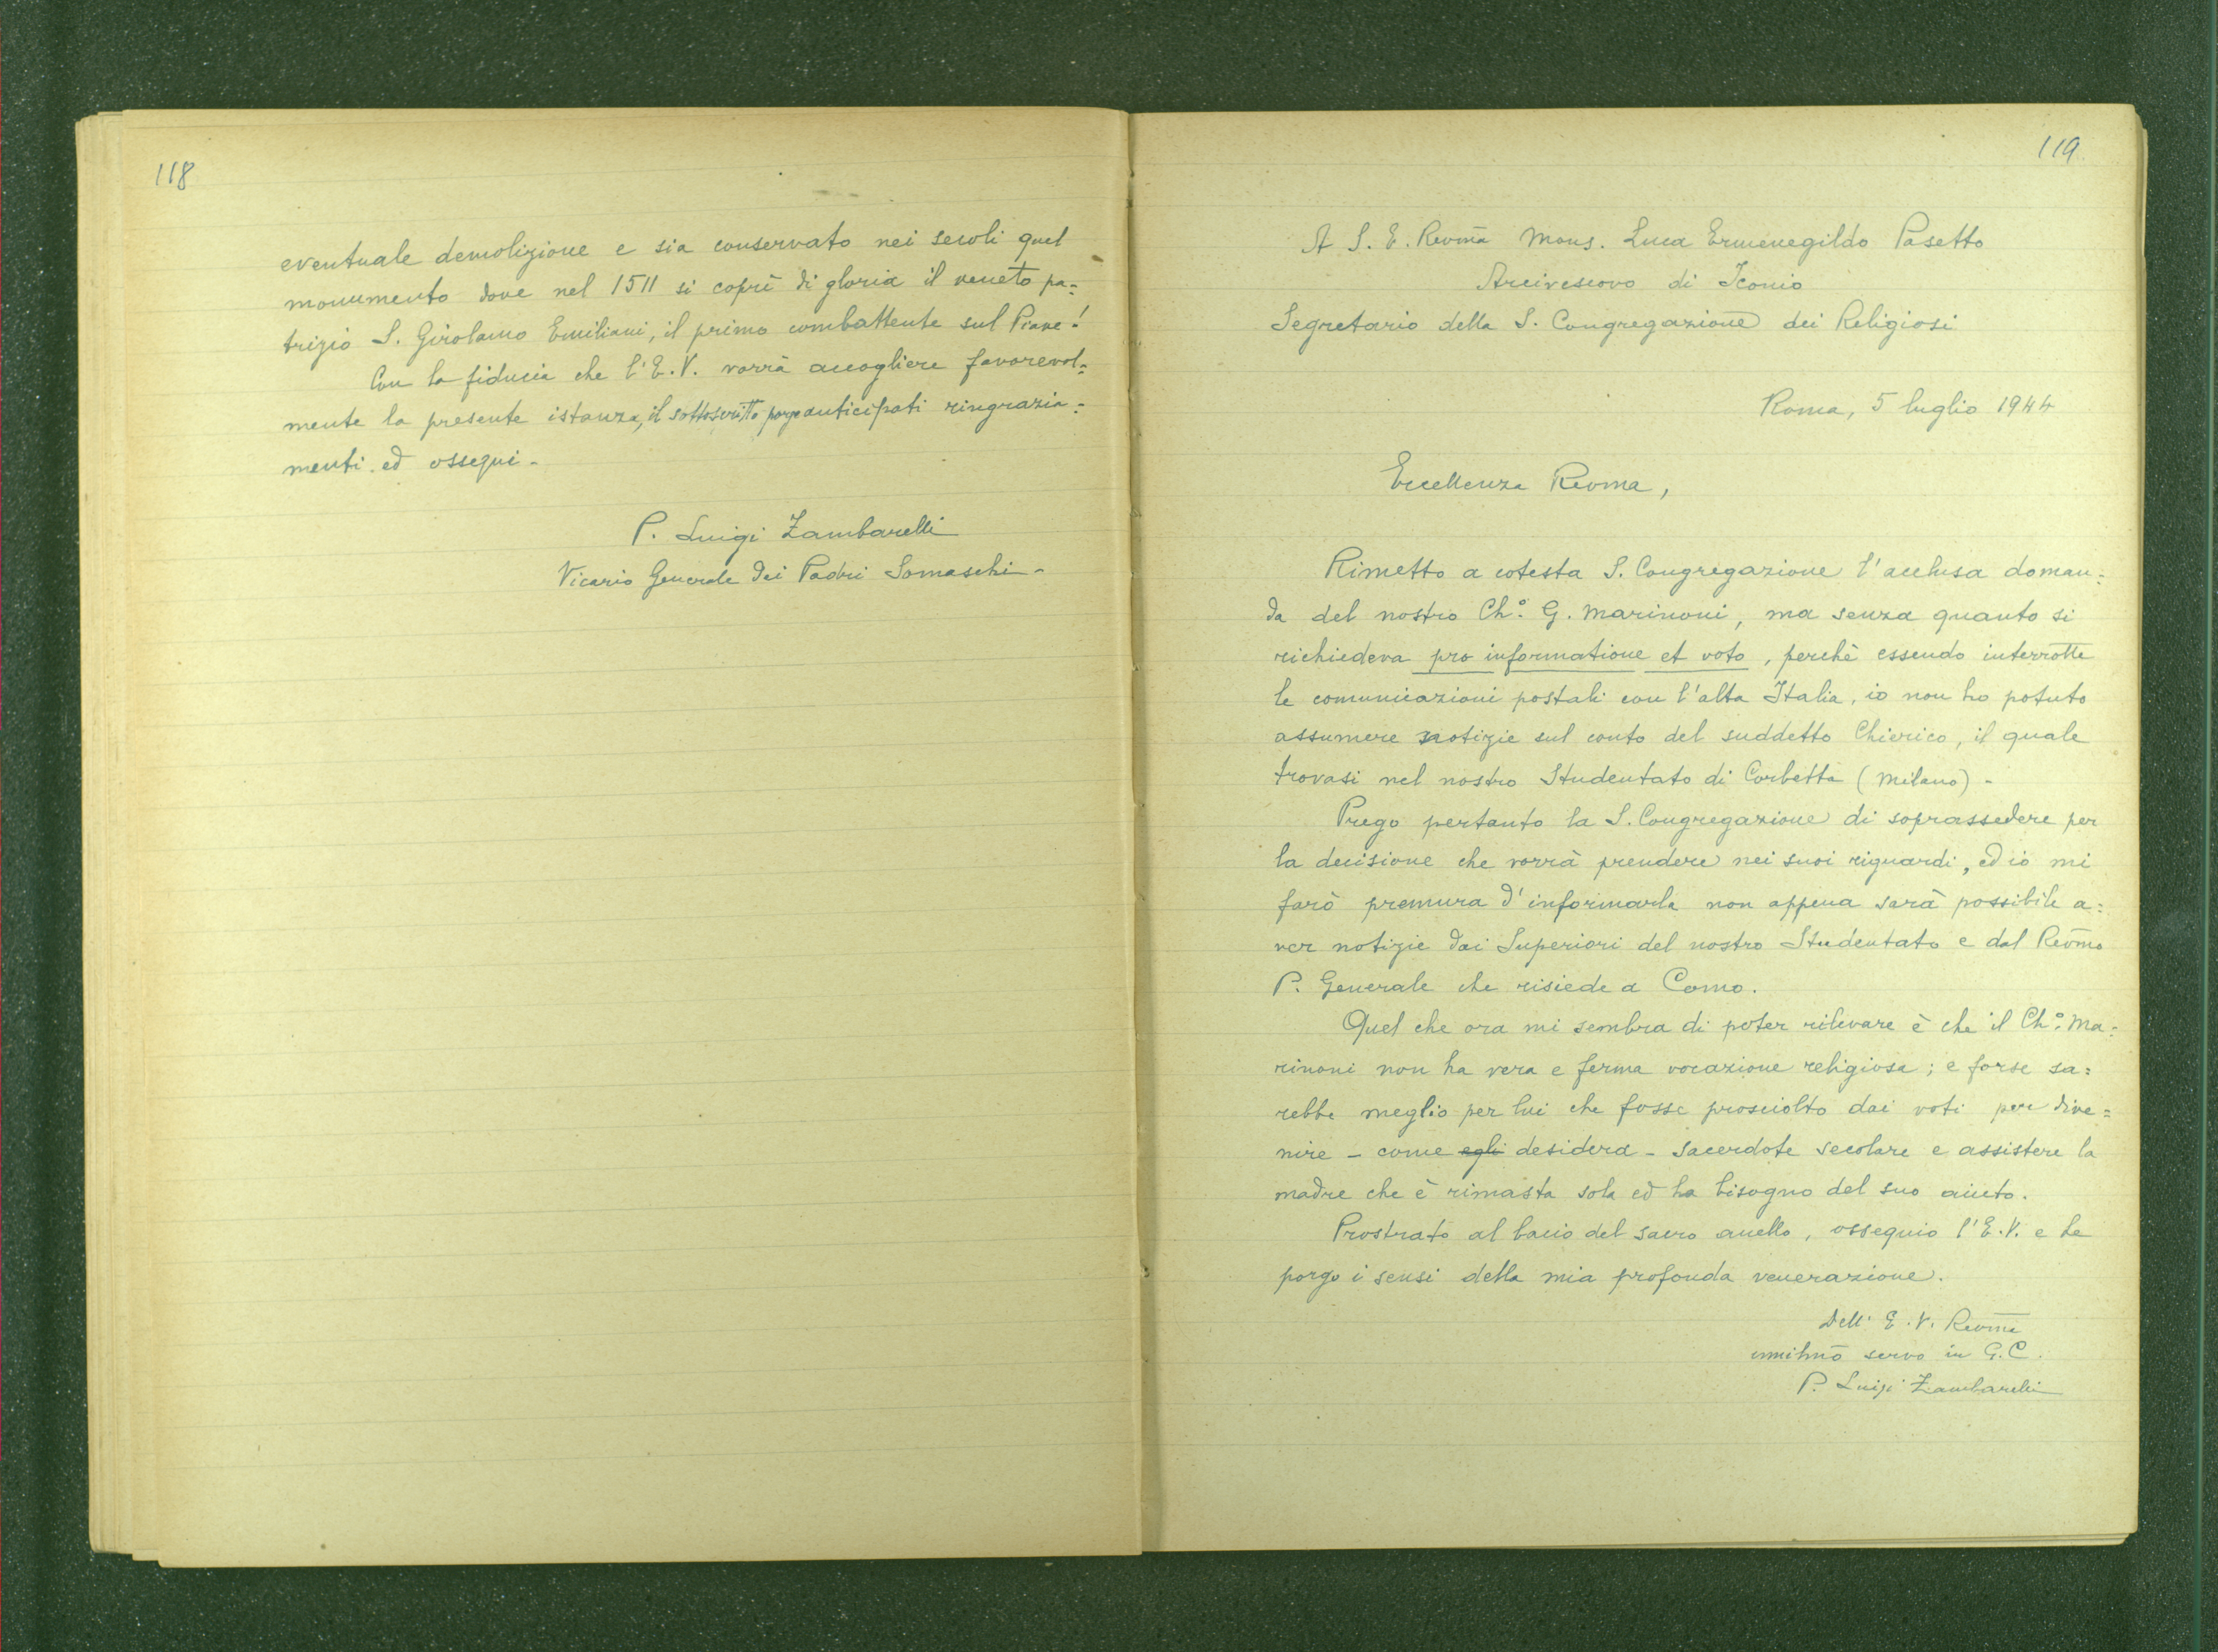 118
eventuale demolizione e sia conservato nei secoli quel
monumento dove nel 1511 si coprì di gloria il veneto pa=
trizio S. Girolamo Emiliani, il primo combattente sul Piave!
Con la fiducia che l'E. V. vorrà accogliere favorevol=
mente la presente istanza, il sottoscritto porge anticipati ringrazia=
menti ed ossequi -
P. Luigi Zambarelli
Vicario Generale dei Padri Somaschi -
119
A S. E. Revm̃a Mons. Luca Ermenegildo Pasetto
Arcivescovo di Iconio
Segretario della S. Congregazione dei Religiosi
Roma, 5 luglio 1944
Eccellenza Revma,
Rimetto a cotesta S. Congregazione l'acclusa doman=
da del nostro Ch.° G. Marinoni, ma senza quanto si
richiedeva pro informatione et voto, perchè essendo interrotte
le comunicazioni postali con l'alta Italia, io non ho potuto
assumere notizie sul conto del suddetto Chierico, il quale
trovasi nel nostro Studentato di Corbetta (Milano) -
Prego pertanto la S. Congregazione di soprassedere per
la decisione che vorrà prendere nei suoi riguardi, ed io mi
farò premura d'informarla non appena sarà possibile a=
ver notizie dai Superiori del nostro Studentato e dal Revm̃o
P. Generale che risiede a Como.
Quel che ora mi sembra di poter rilevare è che il Ch.° Ma=
rinoni non ha vera e ferma vocazione religiosa; e forse sa=
rebbe meglio per lui che fosse prosciolto dai voti per dive=
nire - come egli desidera - sacerdote secolare e assistere la
madre che è rimasta sola ed ha bisogno del suo aiuto.
Prostrato al bacio del sacro anello, ossequio l'E. V. e Le
porgo i sensi della mia profonda venerazione.
Dell' E. V. Revm̃a
umilm̃o servo in G. C.
P. Luigi Zambarelli